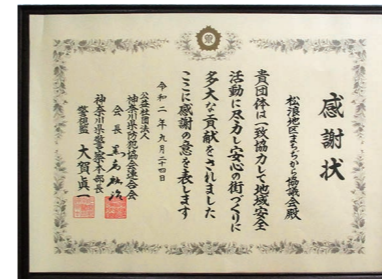 感謝状
松浪地区まちぢから協議会殿
貴団体は一致協力して地域安全
活動に尽力し安心の街づくりに
多大な貢献をされました
ここに感謝の意を表します
令和二年九月二十四日
公益社団法人
神奈川県防犯協会連合会
会長
神奈川県警察本部長
警視監 大賀眞一